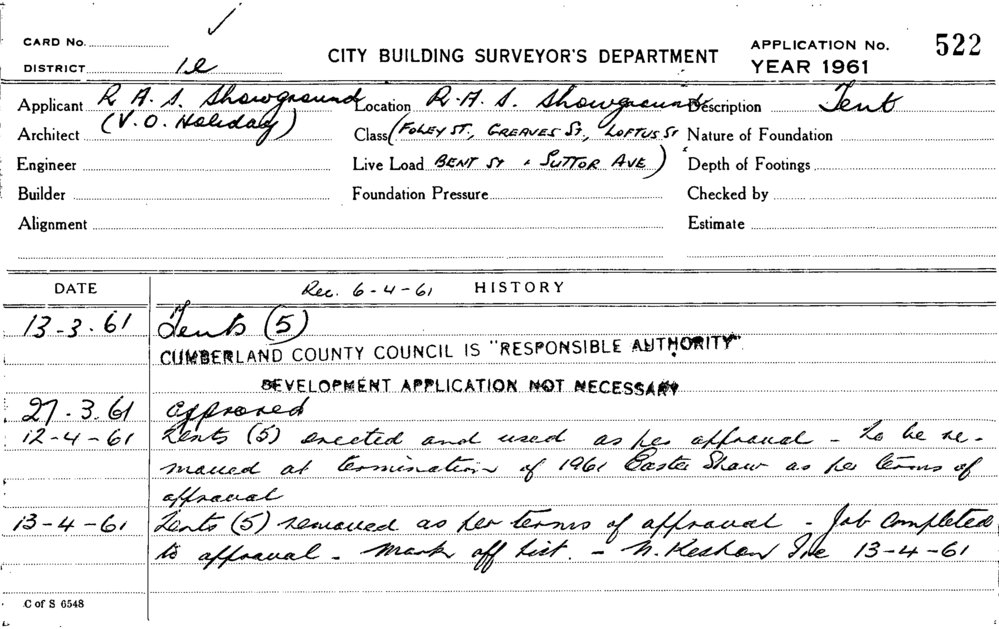 CARD No.
CITY BUILDING SURVEYOR'S DEPARTMENT
APPLICATION No. 522
DISTRICT
YEAR 1961
Applicant R. A. S. Showground Location R. A. S. Showground Description Tent
Architect (V. O. Holiday) Class (FOLEY ST., GREAVES ST., LOFTUS ST Nature of Foundation
Engineer Live Load BENT ST & SUTTOR AVE) Depth of Footings
Builder Foundation Pressure Checked by
Alignment Estimate
DATE Rec. 6-4-61 HISTORY
13-3-61 Tents (5)
CUMBERLAND COUNTY COUNCIL IS "RESPONSIBLE AUTHORITY"
DEVELOPMENT APPLICATION NOT NECESSARY
27.3.61 approved
12-4-61 Tents (5) erected and used as per approval - to be re-
moved at termination of 1961 Easter Show as per terms of
approval
13-4-61 Tents (5) removed as per terms of approval - Job Completed
to approval - mark off list. - 13-4-61
C of S 6548